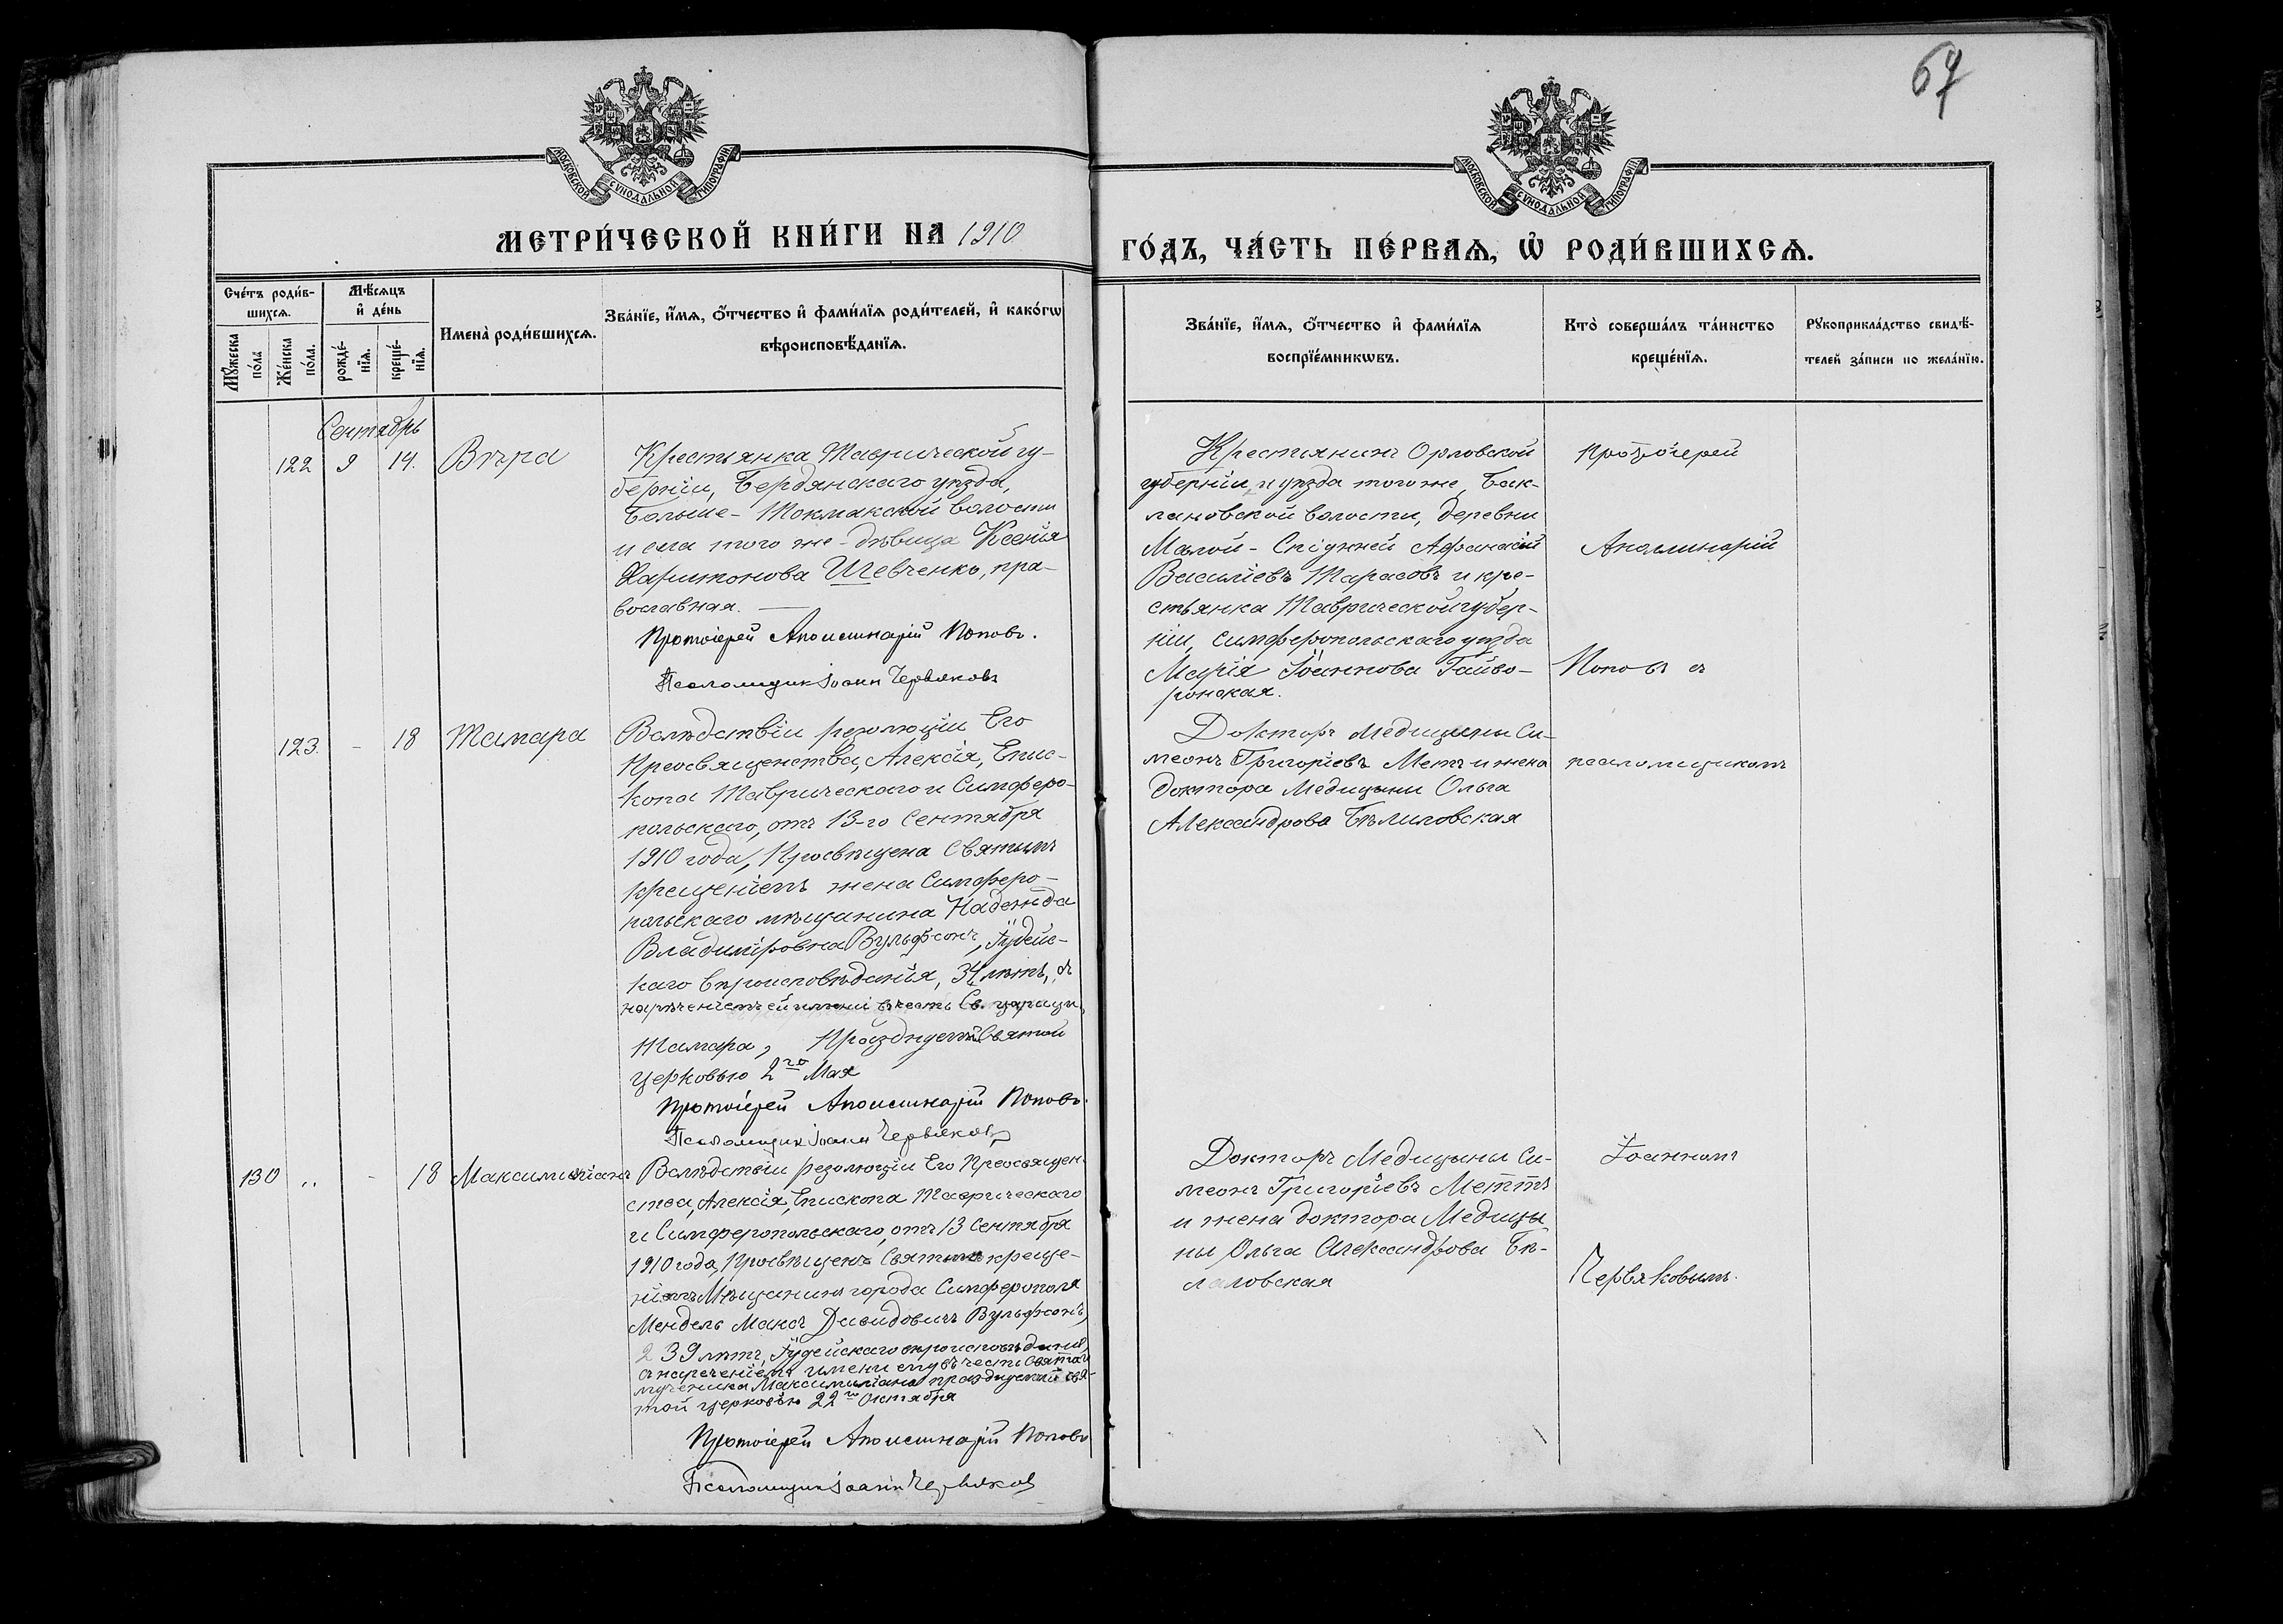 67
МОСКОВСКОЙ СУНОДАЛЬНОЙ ТИПОГРАФІИ
МОСКОВСКОЙ СУНОДАЛЬНОЙ ТИПОГРАФІИ
МЕТРИ́ЧЕСКОЙ КНИ́ГИ НА 1910
ГО́ДЪ, ЧА́СТЬ ПЕ́РВАѦ, Ѡ҆ РОДИ́ВШИХСѦ.
Сче́тъ роди́в-
шихсѧ.
Мꙋ́жеска
по́ла
Же́нска
по́ла.
Мѣ́сѧцъ
и҆ де́нь
рожде́-
нїѧ.
креще́-
нїѧ.
Имена̀ роди́вшихсѧ.
Зва́нїе, и҆́мѧ, ѻ҆́тчество и҆ фами́лїѧ роди́телей, и҆ како́гѡ
вѣроисповѣ́данїѧ.
Зва́нїе, и҆́мѧ, ѻ҆́тчество и҆ фами́лїѧ
воспрїе́мникѡвъ.
Кто̀ соверша́лъ та́инство
креще́нїѧ.
Рꙋкоприкла́дство свидѣ́-
телей за́писи по жела́нїю.
Сентябрь
122 9 14. Вѣра
Крестьянка Таврической гу-
берніи, Бердянскаго уѣзда,
Больше-Токмакской волости
и села того же - дѣвица Ксенія
Харитонова Шевченко, пра-
вославная.
Протоіерей Аполлинарій Поповъ.
Псаломщик Іоанн Червяковъ
Крестьянинъ Орловской
губерніи, и уѣзда того же, Бак-
лановской волости, деревни
Малой - Афанасій
Василіевъ Тарасовъ и кре-
стьянка Таврической губер-
ніи, Симферопольскаго уѣзда
Марія Іоаннова Гайво-
ронская.
Протоіерей
Аполлинарій
Поповъ съ
123. - 18 Тамара
Вслѣдствіи резолюціи Его
Преосвященства, Алексія, Епис-
копа Таврическаго и Симферо-
польскаго, отъ 13-го Сентября
1910 года, Просвѣщена Святымъ
крещеніемъ жена Симферо-
польскаго мѣщанина Надежда
Владиміровна Вульфсонъ, Іудейс-
каго вѣроисповѣданія, 34 лѣтъ, съ
нареченіемъ ей имени въ честь Св. царицы
Тамара, Празднуемой Святой
церковью 2го Мая
Протоіерей Аполлинарій Поповъ.
Псаломщик Іоанн Червяковъ
Докторъ Медицины Си-
меонъ Григоріевъ Метъ и жена
доктора Медицыны Ольга
Александрова Бѣлиловская
псаломщикомъ
130 .. - 18 Максимиліанъ
Вслѣдствіи резолюціи Его Преосвящен-
ства, Алексія, Епископа Таврическаго
и Симферопольскаго, отъ 13 Сентября
1910 года, Просвѣщенъ Святымъ креще-
ніемъ Мѣщанинъ города Симферополя
Мендель Максъ Давидовичъ Вульфсонъ,
39 лѣтъ, Іудейскаго вѣроисповѣданія,
съ нареченіемъ имени ему въ честь Святаго
мученика Максимиліана празднуемый свя-
той церковью 22го Октября
Протоіерей Аполлинарій Поповъ
Псаломщик Іоанн Червяков
Докторъ Медицыны Си-
меонъ Григоріевъ Меттъ
и жена доктора Медицы
ны Ольга Александрова Бѣ-
ловская
Іоанномъ
Червяковымъ.